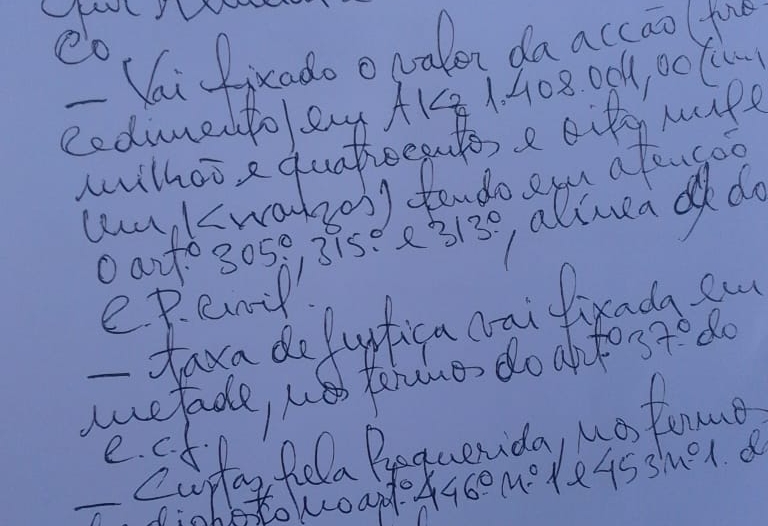 co
— Vai fixado o valor da acção (pro-
cedimento) em AKz 1.408.001,00 (um
milhão e quatrocentos e oito mil e
um Kwanzas) tendo em atenção
o artº 305º, 315º e 313º, alínea d do
C.P. civil.
— taxa de Justiça vai fixada em
metade, nos termos do artº 37º do
C.C.J.
— Custas pela Requerida, nos termos
do disposto no artº 446º nº 1 e 453 nº 1. d